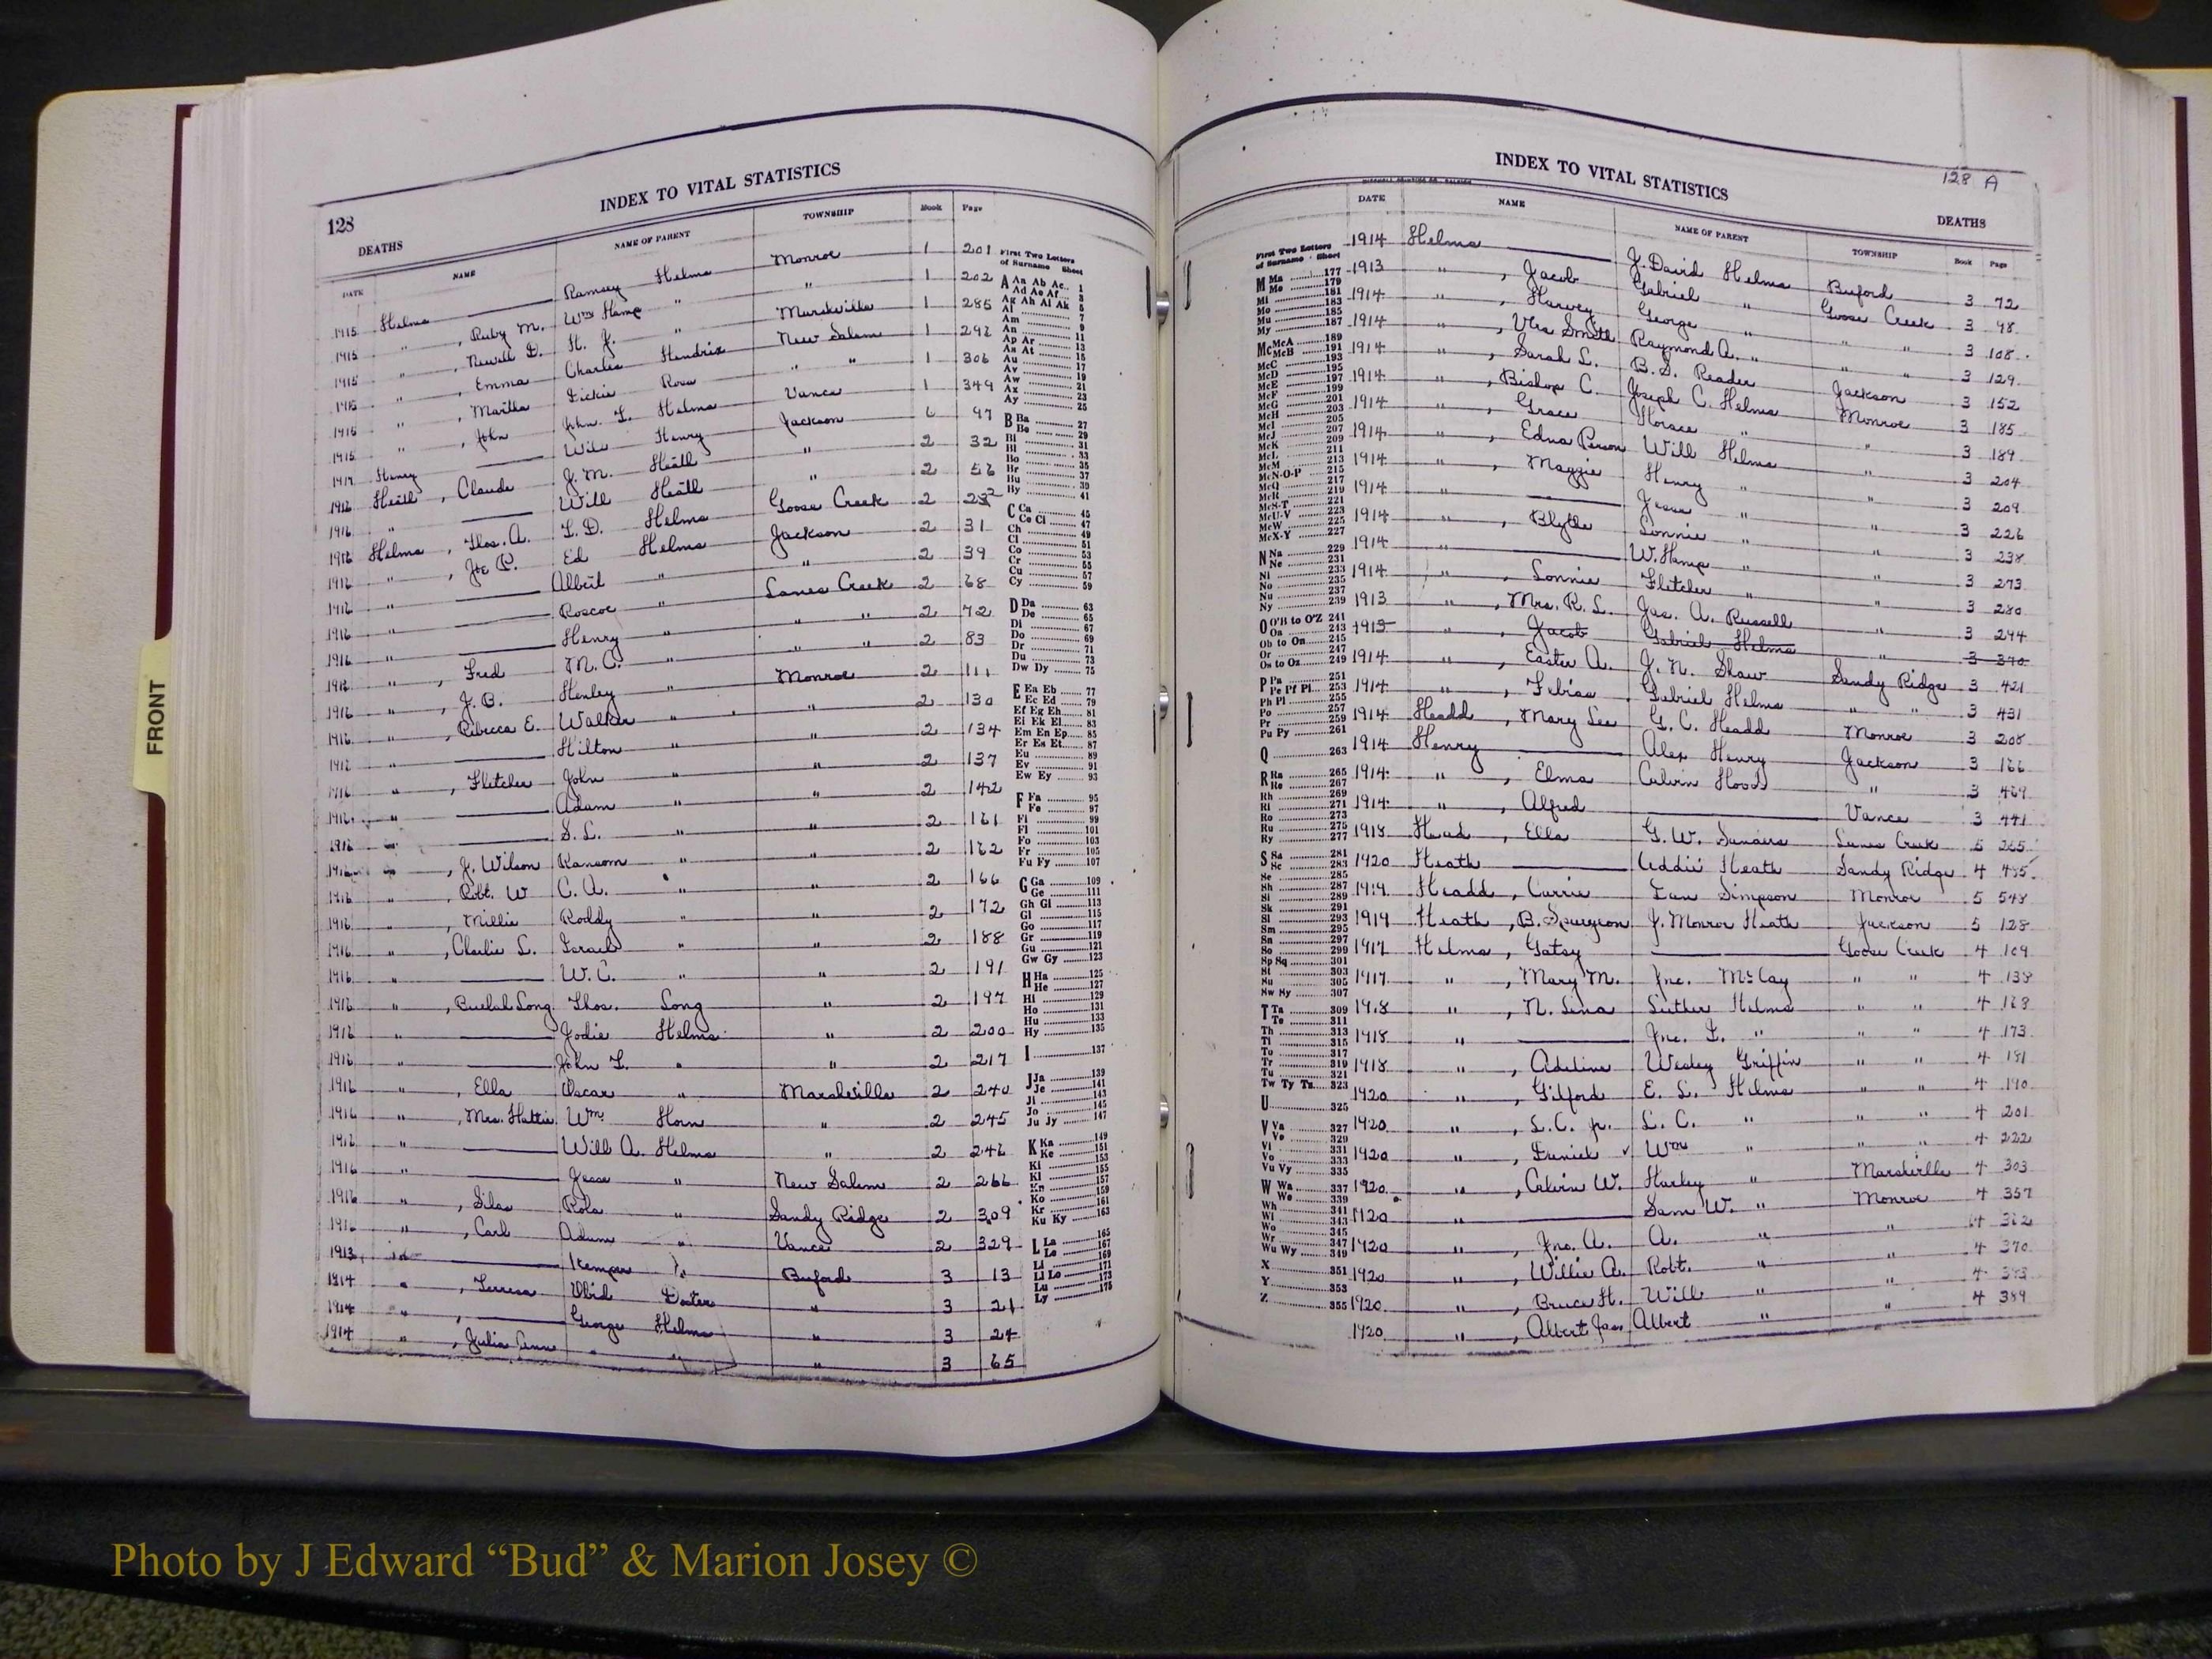 FRONT
128
INDEX TO VITAL STATISTICS
DEATHS
DATE NAME NAME OF PARENT TOWNSHIP Book Page
1915 Helms Ramsey Helms Monroe 1 201
1915 " , Ruby M. Wm Hamp " " 1 202
1915 " , Newell D. H. J. " Marshville 1 285
1915 " , Emma Charles Hendrix New Salem 1 292
1915 " , Martha Dickie Ross " " 1 306
1915 " , John John. L. Helms Vance 1 349
Henry Will Henry Jackson 97
1916 Heath , Claude J. M. Heath " 2 32
1916 " Will Heath " 2
1916 Helms , Thos. A. L. D. Helms Goose Creek 2
1916 " , Joe P. Ed Helms Jackson 2 31
1916 " Albert " " 2 39
1916 " Roscoe " Lanes Creek 2 68
1916 " Henry " " " 2 72
1916 " , Fred M. C. " " " 2 83
1916 " , J. B. Henley " Monroe 2 111
1916 " , Rebecca E. Walker " " 2 130
1916 " Hilton " " 2 134
1916 " , Fletcher John " " 2 137
1916 " Adam " " 2 142
1916 " S. L. " " 2 161
1916 " , J. Wilson Ransom " " 2 162
1916 " , Robt. W C. A. " " 2 166
1916 " , Millie Roddy " 2 172
1916 " , Charlie L. Israel " " 2 188
1916 " W. C. " " 2 191
1916 " , Beulah Long Thos. Long " 2 197
1916 " Jodie Helms " 2 200
1916 " John L. " " 2 217
1916 " , Ella Oscar " Marshville 2 240
1916 " , Mrs. Hattie Wm. Horn " 2 245
1916 " Will A. Helms " 2 246
1916 " Jesse " New Salem 2 266
1916 " , Silas Rola " Sandy Ridge 2 309
1916 " , Carl Adam " Vance 2 329
1913 Kemper Buford 3 13
1914 " , Teresa Obid " 3 21
1914 " George Helms " 3 24
1914 " , Julia Ann " " " 3 65
First Two Letters
of Surname Sheet
A Aa Ab Ac.. 1
Ad Ae Af... 3
Ag Ah Ai Ak 5
Al 7
Am 9
An 11
Ap Ar 13
As At 15
Au 17
Av 19
Aw 21
Ax 23
Ay 25
B Ba 27
Be 29
Bi 31
Bl 33
Bo 35
Br 37
Bu 39
By 41
C Ca 45
Ce Ci 47
Ch 49
Cl 51
Co 53
Cr 55
Cu 57
Cy 59
D Da 63
De 65
Di 67
Do 69
Dr 71
Du 73
Dw Dy 75
E Ea Eb 77
Ec Ed 79
Ef Eg Eh 81
Ei Ek El 83
Em En Ep 85
Er Es Et 87
Eu 89
Ev 91
Ew Ey 93
F Fa 95
Fe 97
Fi 99
Fl 101
Fo 103
Fr 105
Fu Fy 107
G Ga 109
Ge 111
Gh Gi 113
Gl 115
Go 117
Gr 119
Gu 121
Gw Gy 123
H Ha 125
He 127
Hi 129
Ho 131
Hu 133
Hy 135
I 137
J Ja 139
Je 141
Ji 143
Jo 145
Ju Jy 147
K Ka 149
Ke 151
Ki 153
Kl 155
Kn 157
Ko 159
Kr 161
Ku Ky 163
L La 165
Le 167
Li 169
Ll Lo 171
Lu 173
Ly 175
128 A
INDEX TO VITAL STATISTICS
DEATHS
DATE NAME NAME OF PARENT TOWNSHIP Book Page
1914 Helms J. David Helms Buford 3 72
1913 " , Jacob Gabriel " Goose Creek 3 98
1914 " , Harvey George " " " 3 108
1914 " , Vera Smith Raymond A. " " " 3 129
1914 " , Sarah L. B. S. Reader Jackson 3 152
1914 " , Bishop C. Joseph C. Helms Monroe 3 185
1914 " , Grace Horace " " 3 189
1914 " , Edna Person Will Helms " 3 204
1914 " , Maggie Henry " " 3 209
1914 " Jesse " " 3 226
1914 " , Blythe Lonnie " " 3 238
1914 " W. Hamp " " 3 273
1914 " , Lonnie Fletcher " " 3 280
1913 " , Mrs. R. L. Jas. A. Russell " 3 294
1913 " , Jacob Gabriel Helms " 3 370
1914 " , Easter A. J. N. Shaw Sandy Ridge 3 421
1914 " , Gabriel Helms " " 3 431
1914 Headd , Mary Lee G. C. Headd Monroe 3 208
1914 Henry Alex Henry Jackson 3 166
1914 " , Elma Calvin Hood " 3 469
1914 " , Alfred Vance 3 441
1918 Head , Ella G. W. Lanes Creek 5 265
1920 Heath Addie Heath Sandy Ridge 4 495
1919 Headd , Carrie Simpson Monroe 5 548
1919 Heath , B. Spurgeon J. Monroe Heath Jackson 5 128
1917 Helms , Gatsy Goose Creek 4 109
1917 " , Mary M. Jno. McCay " " 4 138
1918 " , N. Lina Luther Helms " " 4 168
1918 " Jno. L. " " " 4 173
1918 " , Adeline Wesley Griffin " " 4 181
1920 " , Gilford E. L. Helms " " 4 190
1920 " , L.C. jr. L. C. " " " 4 201
1920 " , Daniel Wm " " " 4 222
1920 " , Calvin W. Harley " Marshville 4 303
1920 " Sam W. " Monroe 4 357
1920 " , Jno. A. A. " " 4 362
1920 " , Willie A. Robt. " " 4 370
1920 " , Bruce H. Will " " 4 383
1920 " , Albert Jas Albert " " 4 389
First Two Letters
of Surname Sheet
M Ma 177
Me 179
Mi 181
Mo 183
Mu 185
My 187
Mc McA 189
McB 191
McC 193
McD 195
McE 197
McF 199
McG 201
McH 203
McI 205
McJ 207
McK 209
McL 211
McM 213
McN-O-P 215
McQ 217
McR 219
McS-T 221
McU-V 223
McW 225
McX-Y 227
N Na 229
Ne 231
Ni 233
No 235
Nu 237
Ny 239
O O'B to O'Z 241
Oa 243
Ob to On 245
Or 247
Os to Oz 249
P Pa 251
Pe Pf Pi 253
Ph Pl 255
Po 257
Pr 259
Pu Py 261
Q 263
R Ra 265
Re 267
Rh 269
Ri 271
Ro 273
Ru 275
Ry 277
S Sa 281
Sc 283
Se 285
Sh 287
Si 289
Sk 291
Sl 293
Sm 295
Sn 297
So 299
Sp Sq 301
St 303
Su 305
Sw Sy 307
T Ta 309
Te 311
Th 313
Ti 315
To 317
Tr 319
Tu 321
Tw Ty Tz 323
U 325
V Va 327
Ve 329
Vi 331
Vo 333
Vu Vy 335
W Wa 337
We 339
Wh 341
Wi 343
Wo 345
Wr 347
Wu Wy 349
X 351
Y 353
Z 355
Photo by J Edward “Bud” & Marion Josey ©